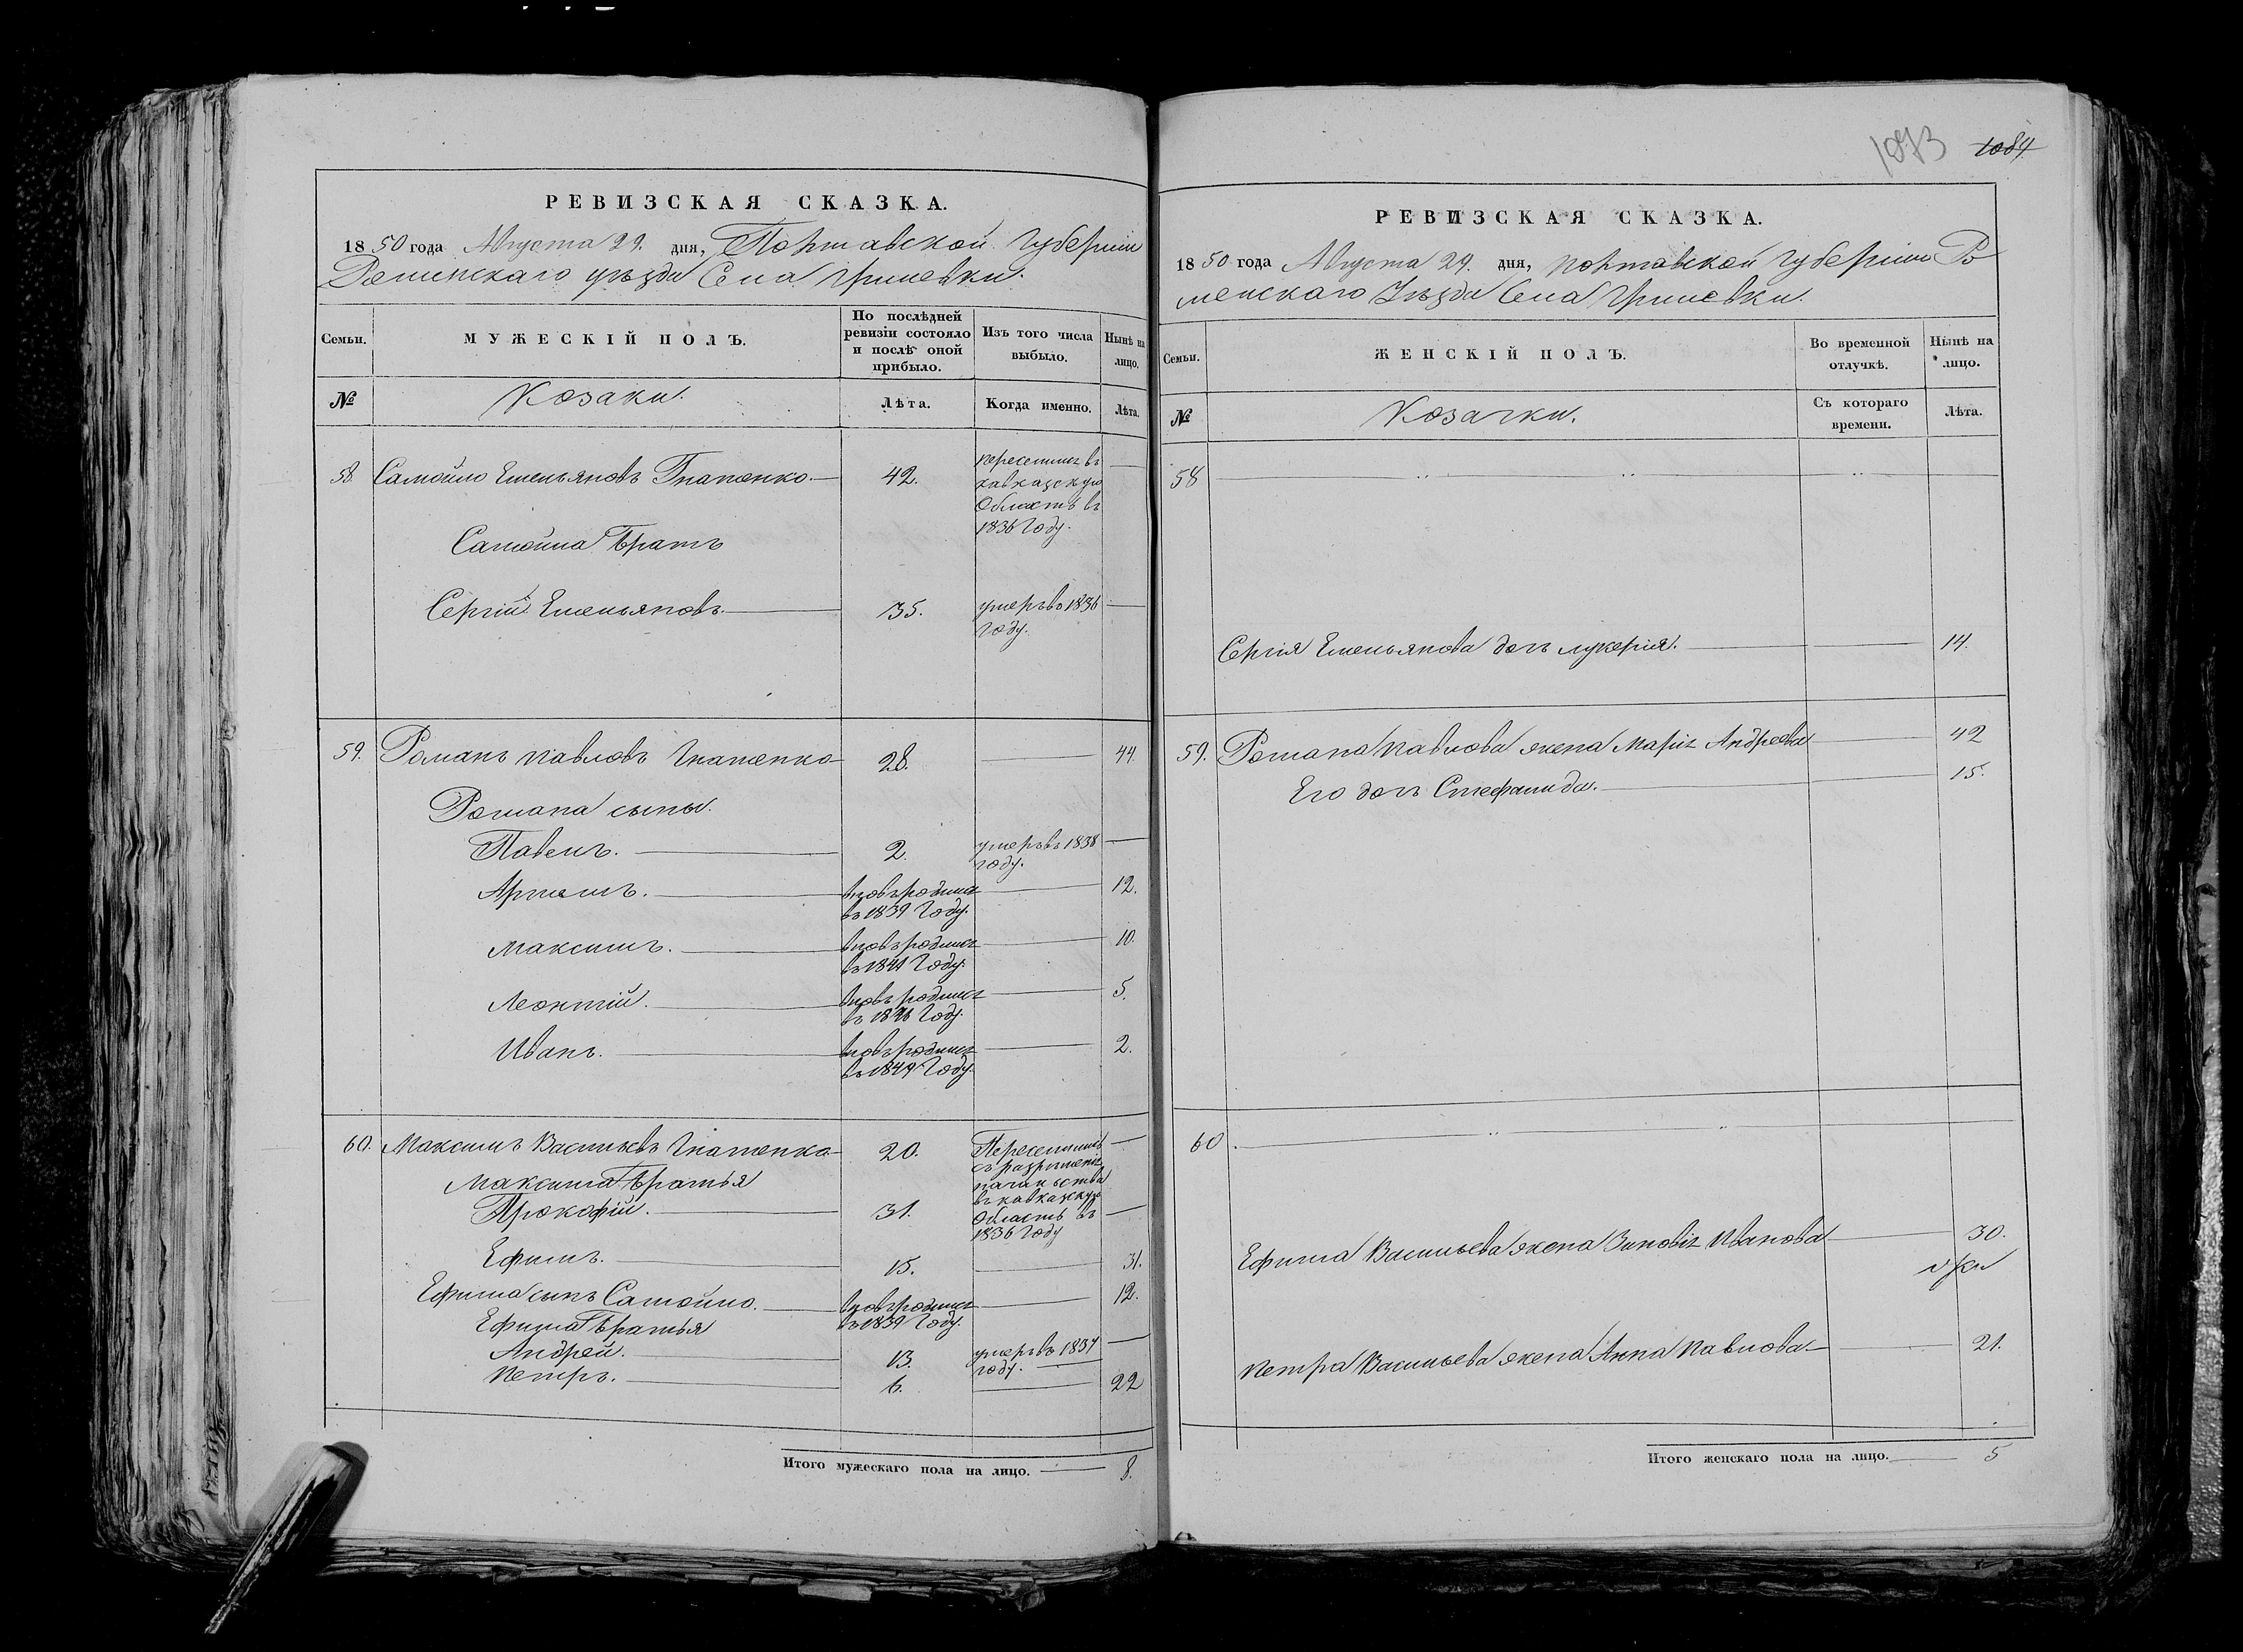 1073 1084
РЕВИЗСКАЯ СКАЗКА.
1850 года Августа 29. дня, Полтавской Губернии
Роменскаго уѣзда Села Гришевки.
Семьи. МУЖЕСКІЙ ПОЛЪ. По послѣдней ревизіи состояло и послѣ оной прибыло. Изъ того числа выбыло. Нынѣ на лицо.
№ Козаки. Лѣта. Когда именно. Лѣта.
58. Самойло Емельяновъ Гнатенко. 42. переселилсь въ
кавказскую
Область въ
1836 Году.
Самойла Братъ
Сергій Емельяновъ. 35. умеръ въ 1836
Году.
59. Романъ Павловъ Гнатенко 28. 44.
Романа сыны.
Павелъ. 2. умеръ въ 1838
году.
Артемъ. вновь родился 12.
въ 1839 Году.
Максимъ. вновь родился 10.
въ 1841 Году.
Леонтій. вновь родился 5.
въ 1846 Году.
Иванъ. вновь родился 2.
въ 1849 Году.
60. Максимъ Васильевъ Гнатенко 20. Переселились
съ разрешенія
начальства
въ кавказскую
Максима Братья
Прокофій. 31. Область въ
1836 Году
Ефимъ. 15. 31.
Ефима сынъ Самойло. вновь родился 12.
въ 1839 Году.
Ефима Братья
Андрей. 13. умеръ въ 1837
году.
Петръ. 6. 22
Итого мужескаго пола на лицо. 8.
РЕВИЗСКАЯ СКАЗКА.
1850 года Августа 29. дня, Полтавской Губерніи Ро
менскаго Уѣзда Села Гришевки.
Семьи. ЖЕНСКІЙ ПОЛЪ. Во временной отлучкѣ. Нынѣ на лицо.
№ Козачки. Съ котораго времени. Лѣта.
58
Сергія Емельянова дочь Лукерія. 14.
59. Романа Павлова жена Марія Андреева 42
Его дочь Стефанида. 15.
60
Ефима Васильева жена Зиновія Иванова 30.
Петра Васильева жена Анна Павлова 21.
Итого женскаго пола на лицо. 5